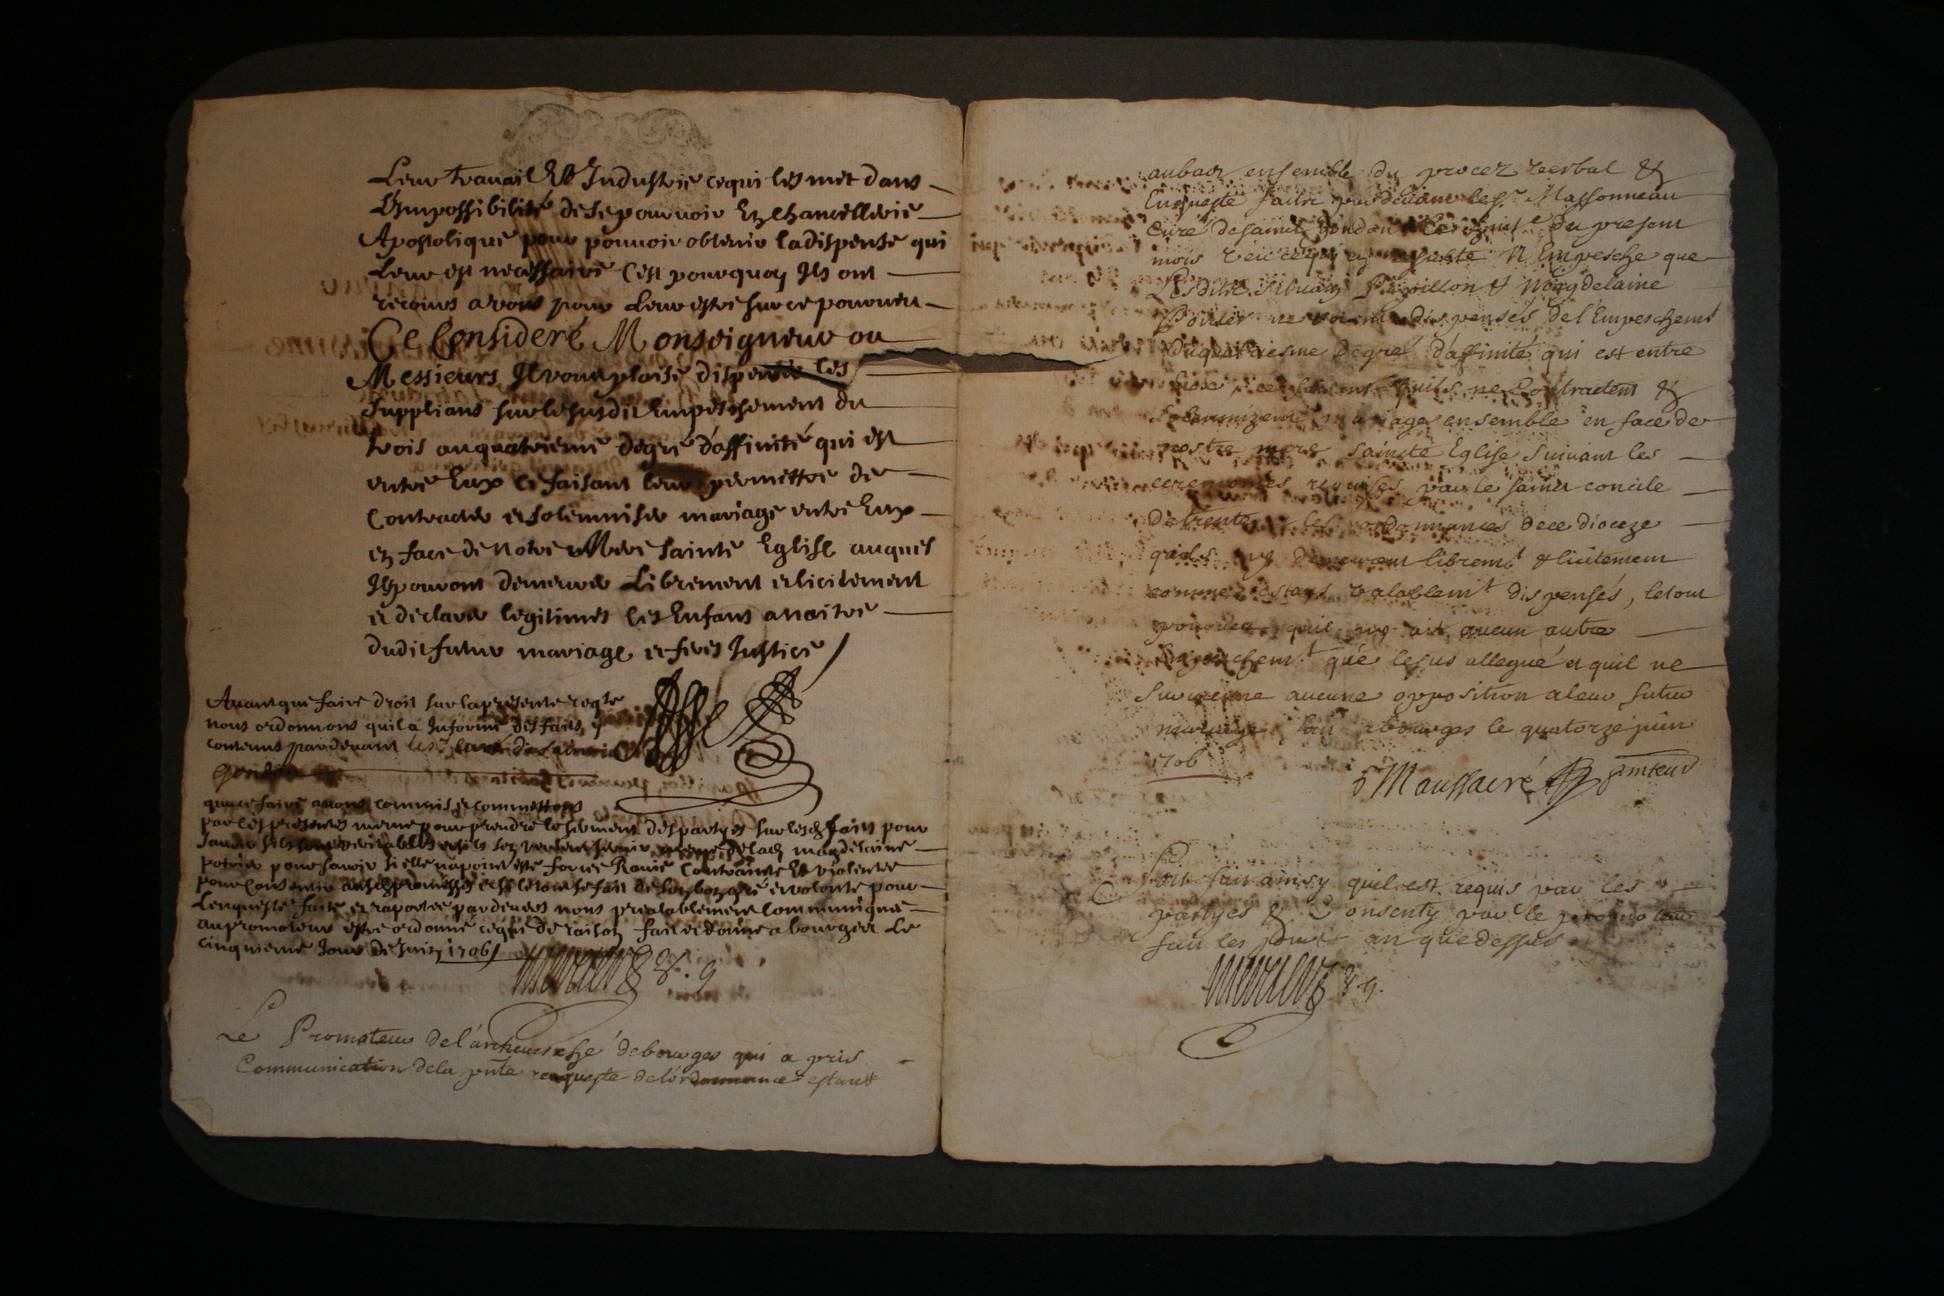 Leur travail Et Industrie cequi les met dans
L'Impossibilité de se pourvoir En chancellerie
Apostolique pour pouvoir obtenir la dispense qui
Leur est necessaire C'est pourquoy Ils ont
recours a vous pour Leur estre sur ce pourveu
Ce Consideré Monseigneur ou
Messieurs Il vous plaise dispenser les
supplians sur le susdit Empeschement du
trois au quatrieme degré d'affinité qui est
entre Eux ce faisant leur permettre de
Contracter et solemniser mariage entre Eux
en face de Notre Mere sainte Eglise auquel
Ils pouront demeurer Librement et licitement
et declarer legitimes les Enfans a naitre
dudit futur mariage et ferés Justice
Avant que faire droit sur la presente reqte
nous ordonnons quil a Informé des faits y
contenus pardevant le sr curé de
que ce faire avons commis et commettons
par les presentes mesme pour prendre le serment des partyes sur lesd faits pour
scavoir sils sont veritables et sils sen veulent servir mesme de lad magdelaine
potier pour scavoir si elle na point esté forcée Ravie Contrainte Et violentée
pour Consentir ausd promesses et si le tout se fait de son bon gré et volonté pour
Lenqueste faite et raportée pardevers nous prealablement Communiquée
au promoteur estre ordonné ce que de raison fait et donné a bourges Le
cinquieme Jour de Juin 1706
v. g
Le Promoteur de l'archevesché de bourges qui a pris
Communication de la pnte requeste de l'ordonnance estant
au bas ensemble du procez verbal &
Enqueste faitte par devant le sr Massonneau
Curé de saint Gondon le huit du present
mois veu ce qui en resulte N'Empesche que
Lesdits Silvain Papillon & Magdelaine
Potier ne soient dispensés de l'Empeschemt
du quatriesme degré d'affinité qui est entre
quils ne Contractent &
Solemnizent mariage ensemble en face de
nostre mere Saincte Eglise suivant les
ceremonies requises par le sainct concile
de trente & les ordonnances de ce dioceze
quils ny demeurent libremt & licitement
comme estans valablemt dispensés, le tout
pourveu quil ny ait aucun autre
Empeschemt que le sus allegué et quil ne
survienne aucune opposition a leur futur
mariage fait a bourges le quatorze juin
1706
D Maussacré pmteur
Soit fait ainsy quil est requis par les
partyes & Consenty par le promoteur
fait les jour et an que dessus
v. g.